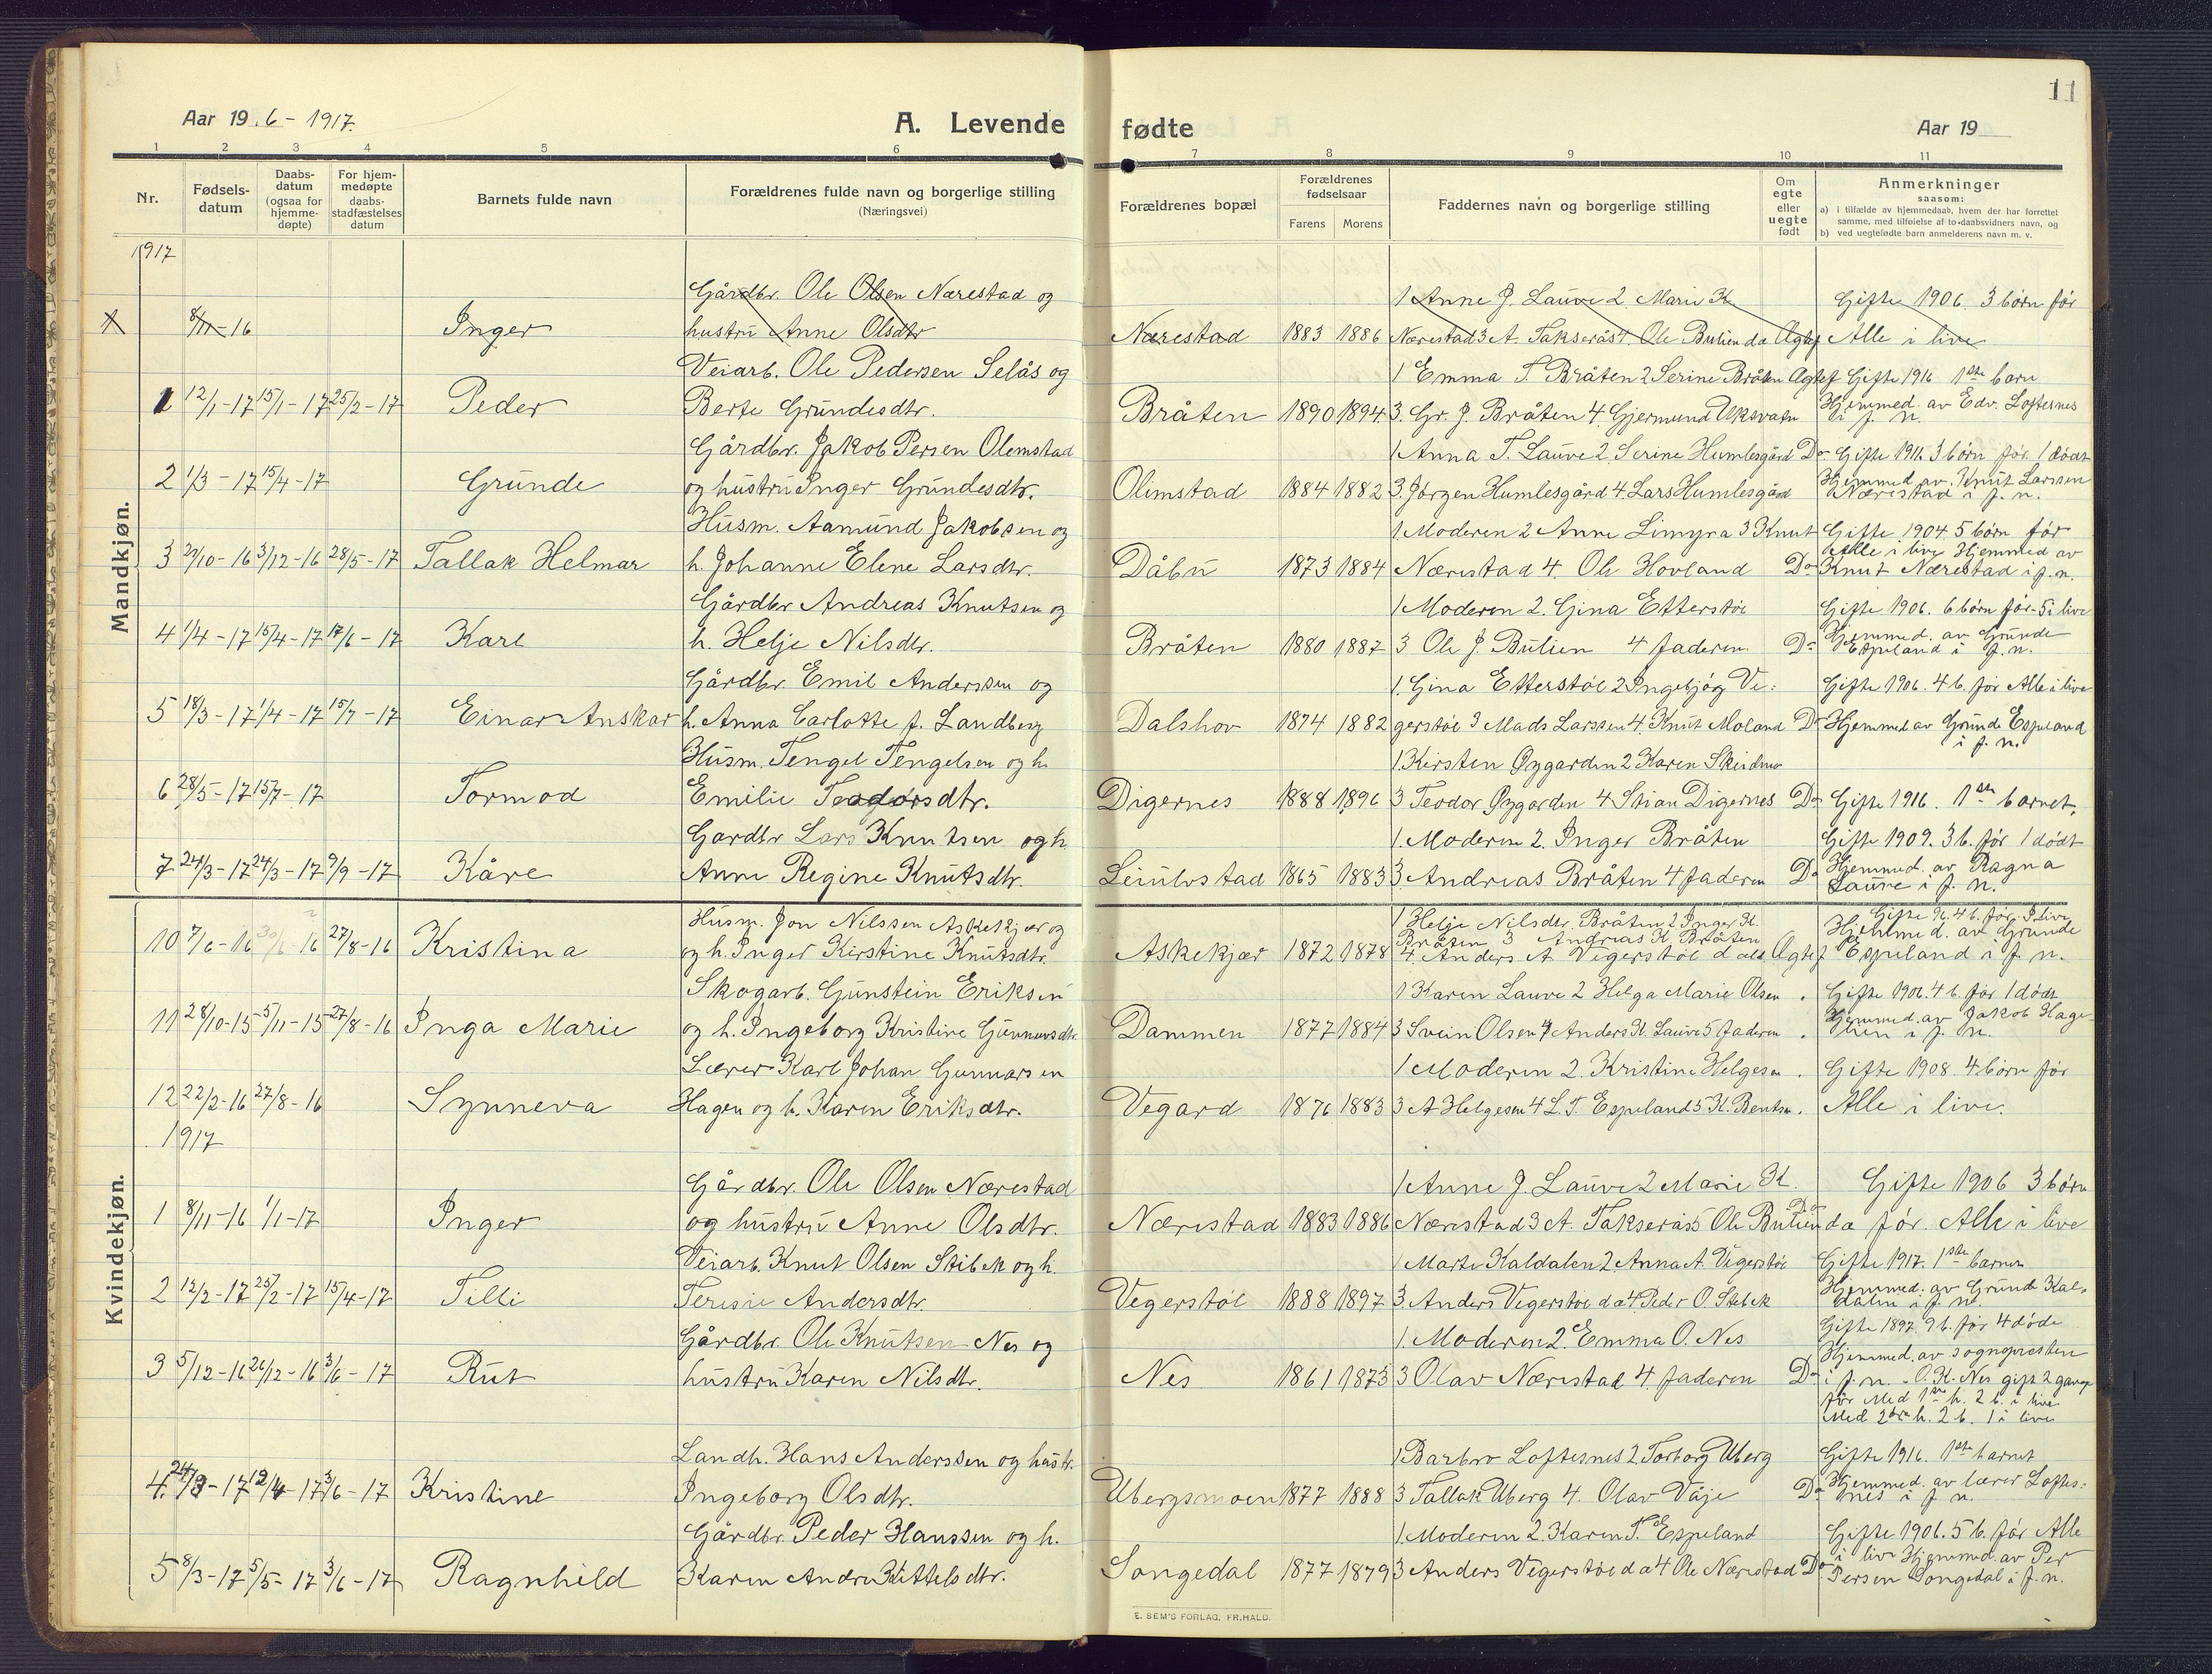 11
Aar 19 6 - 1917.
A. Levende
fødte
Aar 19
1 2 3 4 5 6
7 8 9 10 11
Nr.
Fødsels-
datum
Daabs-
datum
(ogsaa for
hjemme-
døpte)
For hjem-
medøpte
daabs-
stadfæstelses
datum
Barnets fulde navn
Forældrenes fulde navn og borgerlige stilling
(Næringsvei)
Forældrenes bopæl
Forældrenes
fødselsaar
Farens Morens
Faddernes navn og borgerlige stilling
Om
egte
eller
uegte
født
Anmerkninger
saasom:
a) i tilfælde av hjemmedaab, hvem der har forrettet
samme, med tilføielse af to daabsvidners navn, og
b) ved uegtefødte barn anmelderens navn m. v.
Mandkjøn.
1917
Gårdbr. Ole Olsen Nærestad og
1 Anne J. Lauve 2. Marie K.
Gifte 1906. 3 børn før
1 8/11-16 Inger hustru Anne Olsdtr
Nærestad 1883 1886 Nærestad 3 A. Takserås 4. Ole Bulien da Ægtef Alle i live
Veiarb. Ole Pedersen Selås og
1 Emma T. Bråten 2 Serine Bråten Ægtef Gifte 1916 1ste barn
1 12/1-17 15/1-17 25/2-17 Peder Berte Grundesdtr.
Bråten 1890 1894 3. Gr. J. Bråten 4. Gjermund Uksvatn Hjemmed. av Edv. Loftesnes
i f. n.
Gårdbr. Jakob Persen Olemstad
1 Anna T. Lauve 2. Serine Humlesgård Do Gifte 1911. 3 børn før. 1 dødt
2 1/3-17 15/4-17 Grunde og hustru Inger Grundesdtr.
Olimstad 1884 1882 3. Jørgen Humlesgård 4. Lars Humlesgård Hjemmed. av. Knut Larssen
Nærestad i f. n.
Husm. Aamund Jakobsen og
1 Moderen 2 Anne Limyra 3 Knut Gifte 1904. 5 børn før
3 29/10-16 3/12-16 28/5-17 Tallak Helmar h. Johanne Elene Larsdtr.
Dåbu 1873 1884 Nærestad 4. Ole Hovland Do Alle i live Hjemmed av
Knut Nærestad i f. n.
Gårdbr Andreas Knutsen og
1 Moderen 2. Gina Etterstøl Gifte 1906. 6 børn før - 5 i live
4 1/4-17 15/4-17 17/6-17 Karl h. Helje Nilsdtr.
Bråten 1880 1887 3 Ole J. Bulien 4 faderen. Do Hjemmed. av Grunde
Espeland i f. n.
Gårdbr. Emil Anderssen og
1. Gina Etterstøl 2 Ingebjørg Ve= Gifte 1906. 4 b. før Alle i live
5 18/3-17 1/4-17 15/7-17 Einar Anskar h. Anna Carlotte f. Landberg
Dalshov 1874 1882 gerstøl 3 Mads Larssen 4. Knut Moland Do Hjemmed av Grunde Espeland
i f. n.
Husm. Tengel Tengelsen og h.
1. Kirsten Øygarden 2 Karen
6 28/5-17 15/7-17 Tormod Emilie Teodorsdtr.
Digernes 1888 1896 3 Teodor Øygarden 4 Stian Digernes Do Gifte 1916. 1ste barnet.
Gardbr Lars Knutsen og h.
1. Moderen 2. Inger Bråten Gifte 1909. 3 b. før 1 dødt
7 24/3-17 24/3-17 9/9-17 Kåre Anne Regine Knutsdtr.
1865 1883 3. Andreas Bråten 4 faderen Do Hjemmed. av Ragna
Lauve i f. n.
Kvindekjøn.
Husm. Jon Nilssen Askekjær og
1 Helje Nilsdtr. Bråten 2 Inger K.
Bråten 3 Andreas K. Bråten
10 7/6-16 30/6-16 27/8-16 Kristina og h. Inger Kirstine Knutsdtr.
Askekjær 1872 1878 4. Anders A Vegerstøl d ald Ægtef Hjemmed. av Grunde
Espeland i f. n.
Skogarb. Gunstein Eriksen
1 Karen Lauve 2 Helga Marie Olsen Gifte 1906. 4 b. før 1 dødt
11 28/10-15 5/11-15 27/8-16 Inga Marie og h. Ingeborg Kristine Gunnarsdtr.
Dammen 1877 1884 3 Svein Olsen 4 Anders K. Lauve 5 faderen. Hjemmed. av Jakob Hage-
lien i f. n.
Lærer Karl Johan Gunnarsen
1 Moderen 2. Kristine Helgesen. Gifte 1908. 4 børn før
12 22/2-16 27/8-16 Synneva Hagen og h. Karen Eriksdtr.
Vegard 1876 1883 3 A Helgesen 4 L. T. Espeland 5 K. Bentsen. Alle i live.
1917
Gårdbr. Ole Olsen Nærestad
1 Anne J. Lauve 2 Marie K. Gifte 1906 3 børn
1 8/11-16 1/1-17 Inger og hustru Anne Olsdtr.
Nærestad 1883 1886 Nærestad 3 A. Takserås 5 Ole Bulien da Do før. Alle i live
Veiarb. Knut Olsen Stibek og h.
1 Marte Kaldalen 2. Anna A. Vegerstøl Gifte 1917. 1ste barnet
2 12/2-17 25/2-17 15/4-17 Tilli Teresie Andersdtr.
Vegerstøl 1888 1897 3. Anders Vegerstøl da 4 Peder O. Stibek Hjemmed. av Grunde Kal-
dalen i f. n.
Gårdbr. Ole Knutsen Nes og
1. Moderen 2. Emma O. Nes Gifte 1897. 9 b. før 4 døde
3 5/12-16 26/12-16 3/6-17 Rut hustru Karen Nilsdtr.
Nes 1861 1873 3 Olav Nærestad 4. faderen Do Hjemmed. av sognepresten
i f. n. - O. K. Nes gift 2 gange
før Med 1ste h. 2 b. i live
Med 2den h. 2 b. 1 i live
Landh. Hans Anderssen og hustr.
1 Barbro Loftesnes 2. Torborg Uberg Gifte 1916. 1ste barnet
4. 24/3-17 12/4-17 3/6-17 Kristine Ingeborg Olsdtr.
Ubergsmoen 1877 1888 3 Tallak Uberg 4. Olav Våje Do Hjemmed. av lærer Loftes=
nes i f. n.
Gårdbr. Peder Hanssen og h.
1. Moderen 2. Karen T. Espeland Gifte 1906. 5 b. før Alle
5 8/3-17 5/5-17 3/6-17 Ragnhild Karen Andrea Kittelsdtr.
Songedal 1877 1879 3 Anders Vegerstøl da 4 Ole Nærestad Do i live Hjemmed. av Per
Persen Songedal i f. n.
E. SEM'S FORLAG, FR.HALD.